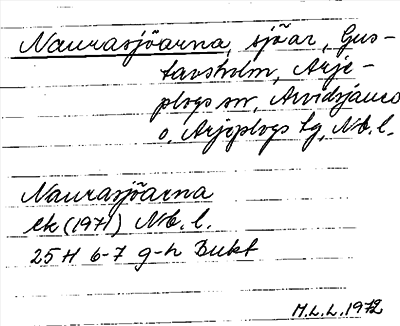 Naurasjöarna, sjöar, Gus-
tavsholm, Arje-
plogs sn, Arvidsjaurs
o. Arjeplogs lg, Nb. l.
Naurasjöarna
ek (1971) Nb. l.
25 H 6-7 g-h Bukt
M.L.L. 1972